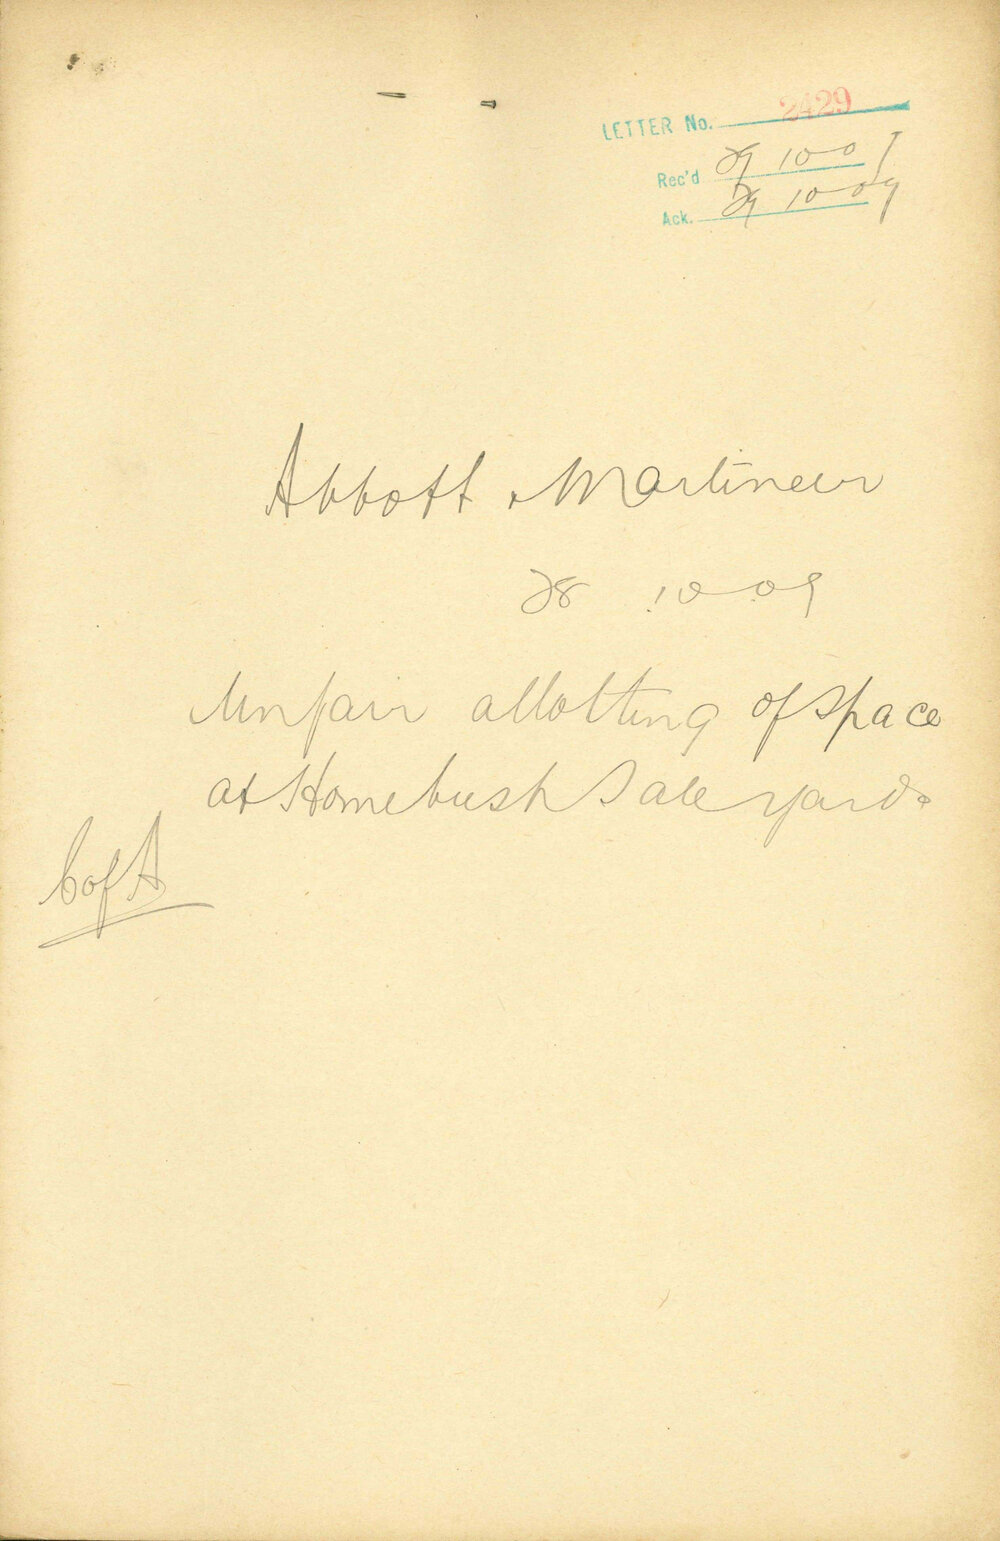 LETTER No. 2429
Rec'd 29 10 09
Ack. 29 10 09
Abbott & Martineer
28 10 09
Unfair allotting of space
at Homebush Sale yards
C of A